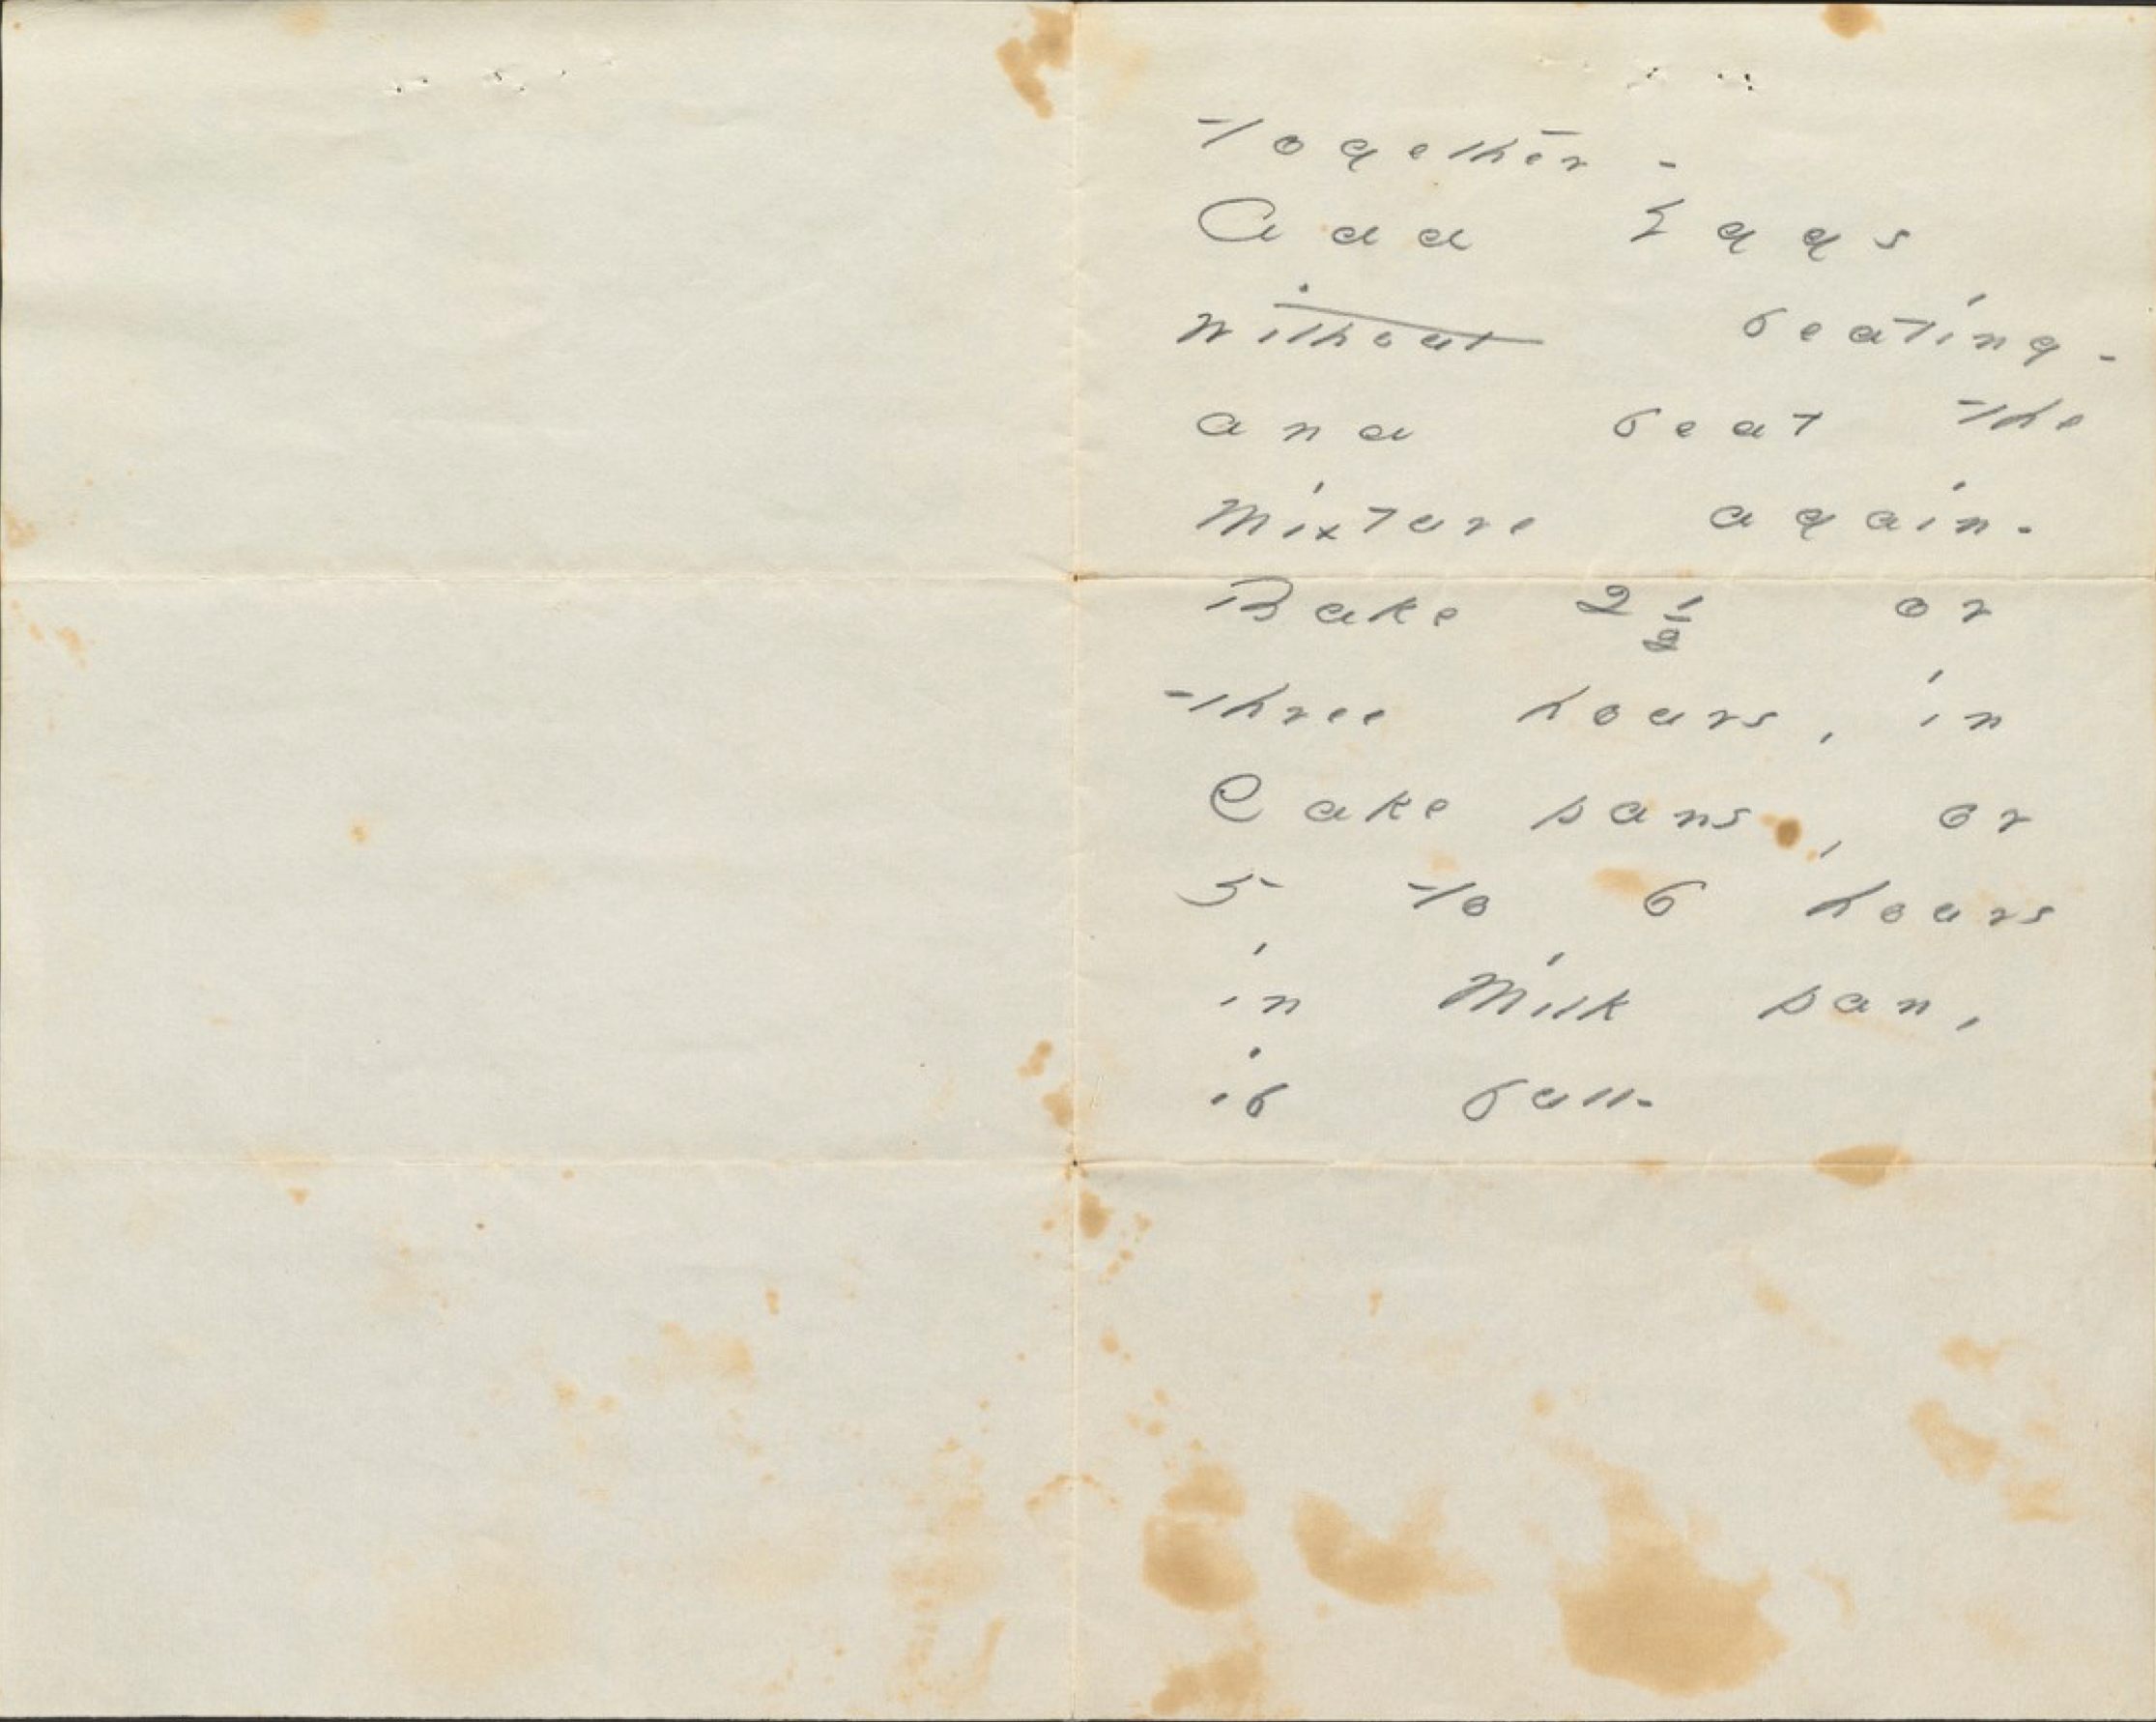 together -
Add Eggs
without beating -
and beat the
Mixture again.
Bake 2 1/2 or
three hours, in
Cake pans, or
5 to 6 hours
in Milk pan,
if full.